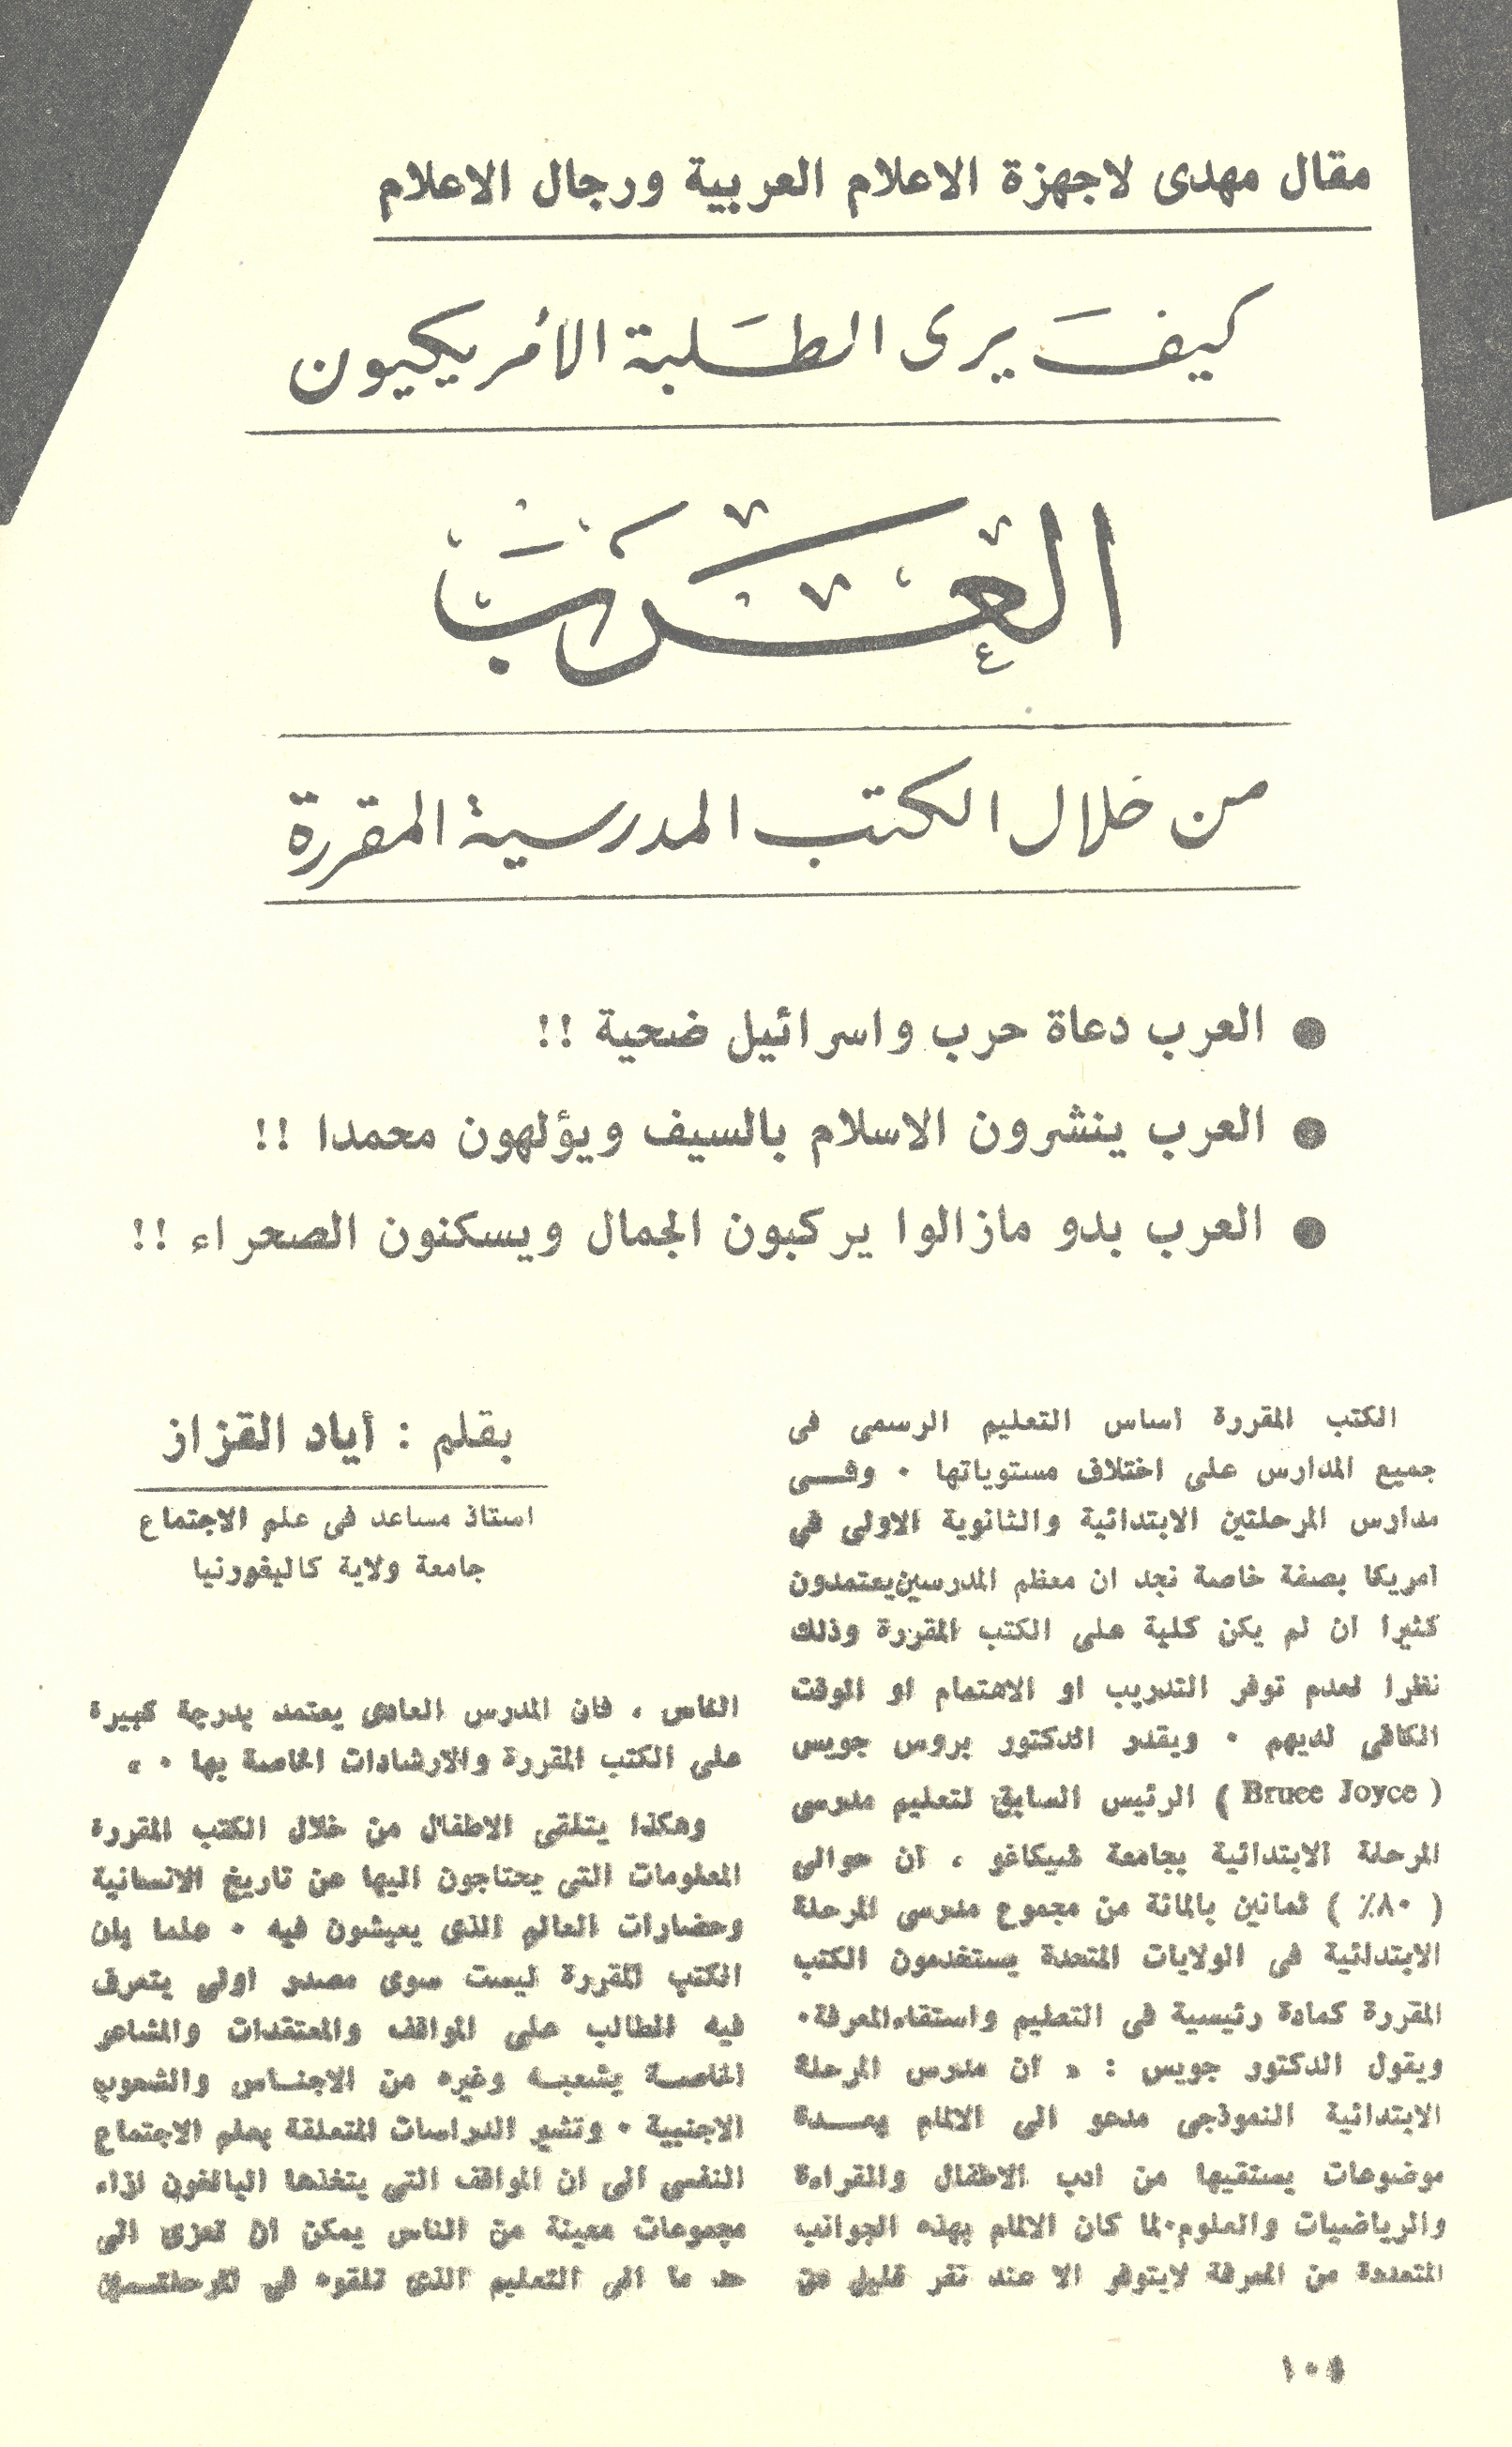 مقال مهدى لاجهزة الاعلام العربية ورجال الاعلام
كيفَ يرى الطَلبة الأمريكيون
العَرَبَ
من خلال الكتب المدرسية المقررة
● العرب دعاة حرب واسرائيل ضحية !!
● العرب ينشرون الاسلام بالسيف ويؤلهون محمدا !!
● العرب بدو مازالوا يركبون الجمال ويسكنون الصحراء !!
الكتب المقررة اساس التعليم الرسمى فى
جميع المدارس على اختلاف مستوياتها ٠ وفـــى
مدارس المرحلتين الابتدائية والثانوية الاولى في
امريكا بصفة خاصة نجد ان معظم المدرسين يعتمدون
كثيرا ان لم يكن كلية على الكتب المقررة وذلك
نظرا لعدم توفر التدريب او الاهتمام او الوقت
الكافى لديهم ٠ ويقدر الدكتور بروس جويس
( Bruce Joyce ) الرئيس السابق لتعليم مدرسى
المرحلة الابتدائية بجامعة شيكاغو ، ان حوالى
( ٨٠٪ ) ثمانين بالمائة من مجموع مدرسى المرحلة
الابتدائية فى الولايات المتحدة يستخدمون الكتب
المقررة كمادة رئيسية فى التعليم واستقاء المعرفة٠
ويقول الدكتور جويس : « ان مدرس المرحلة
الابتدائية النموذجى مدعو الى الالمام بعـــدة
موضوعات يستقيها من ادب الاطفال والقراءة
والرياضيات والعلوم٠لما كان الالمام بهذه الجوانب
المتعددة من المعرفة لايتوفر الا عند نفر قليل من
بقلم : أياد القزاز
استاذ مساعد فى علم الاجتماع
جامعة ولاية كاليفورنيا
الناس ، فان المدرس العادى يعتمد بدرجة كبيرة
على الكتب المقررة والارشادات الخاصة بها ٠ »
وهكذا يتلقى الاطفال من خلال الكتب المقررة
المعلومات التى يحتاجون اليها عن تاريخ الانسانية
وحضارات العالم الذى يعيشون فيه ٠ علما بان
الكتب المقررة ليست سوى مصدر اولى يتعرف
فيه الطالب على المواقف والمعتقدات والمشاعر
الخاصـة بشعبـه وغيره من الاجنـاس والشعوب
الاجنبية ٠ وتشير الدراسات المتعلقة بعلم الاجتماع
النفسى الى ان المواقف التى يتخذها البالغون ازاء
مجموعات معينة من الناس يمكن ان تعزى الى
حد ما الى التعليم الذى تلقوه في المرحلتـين